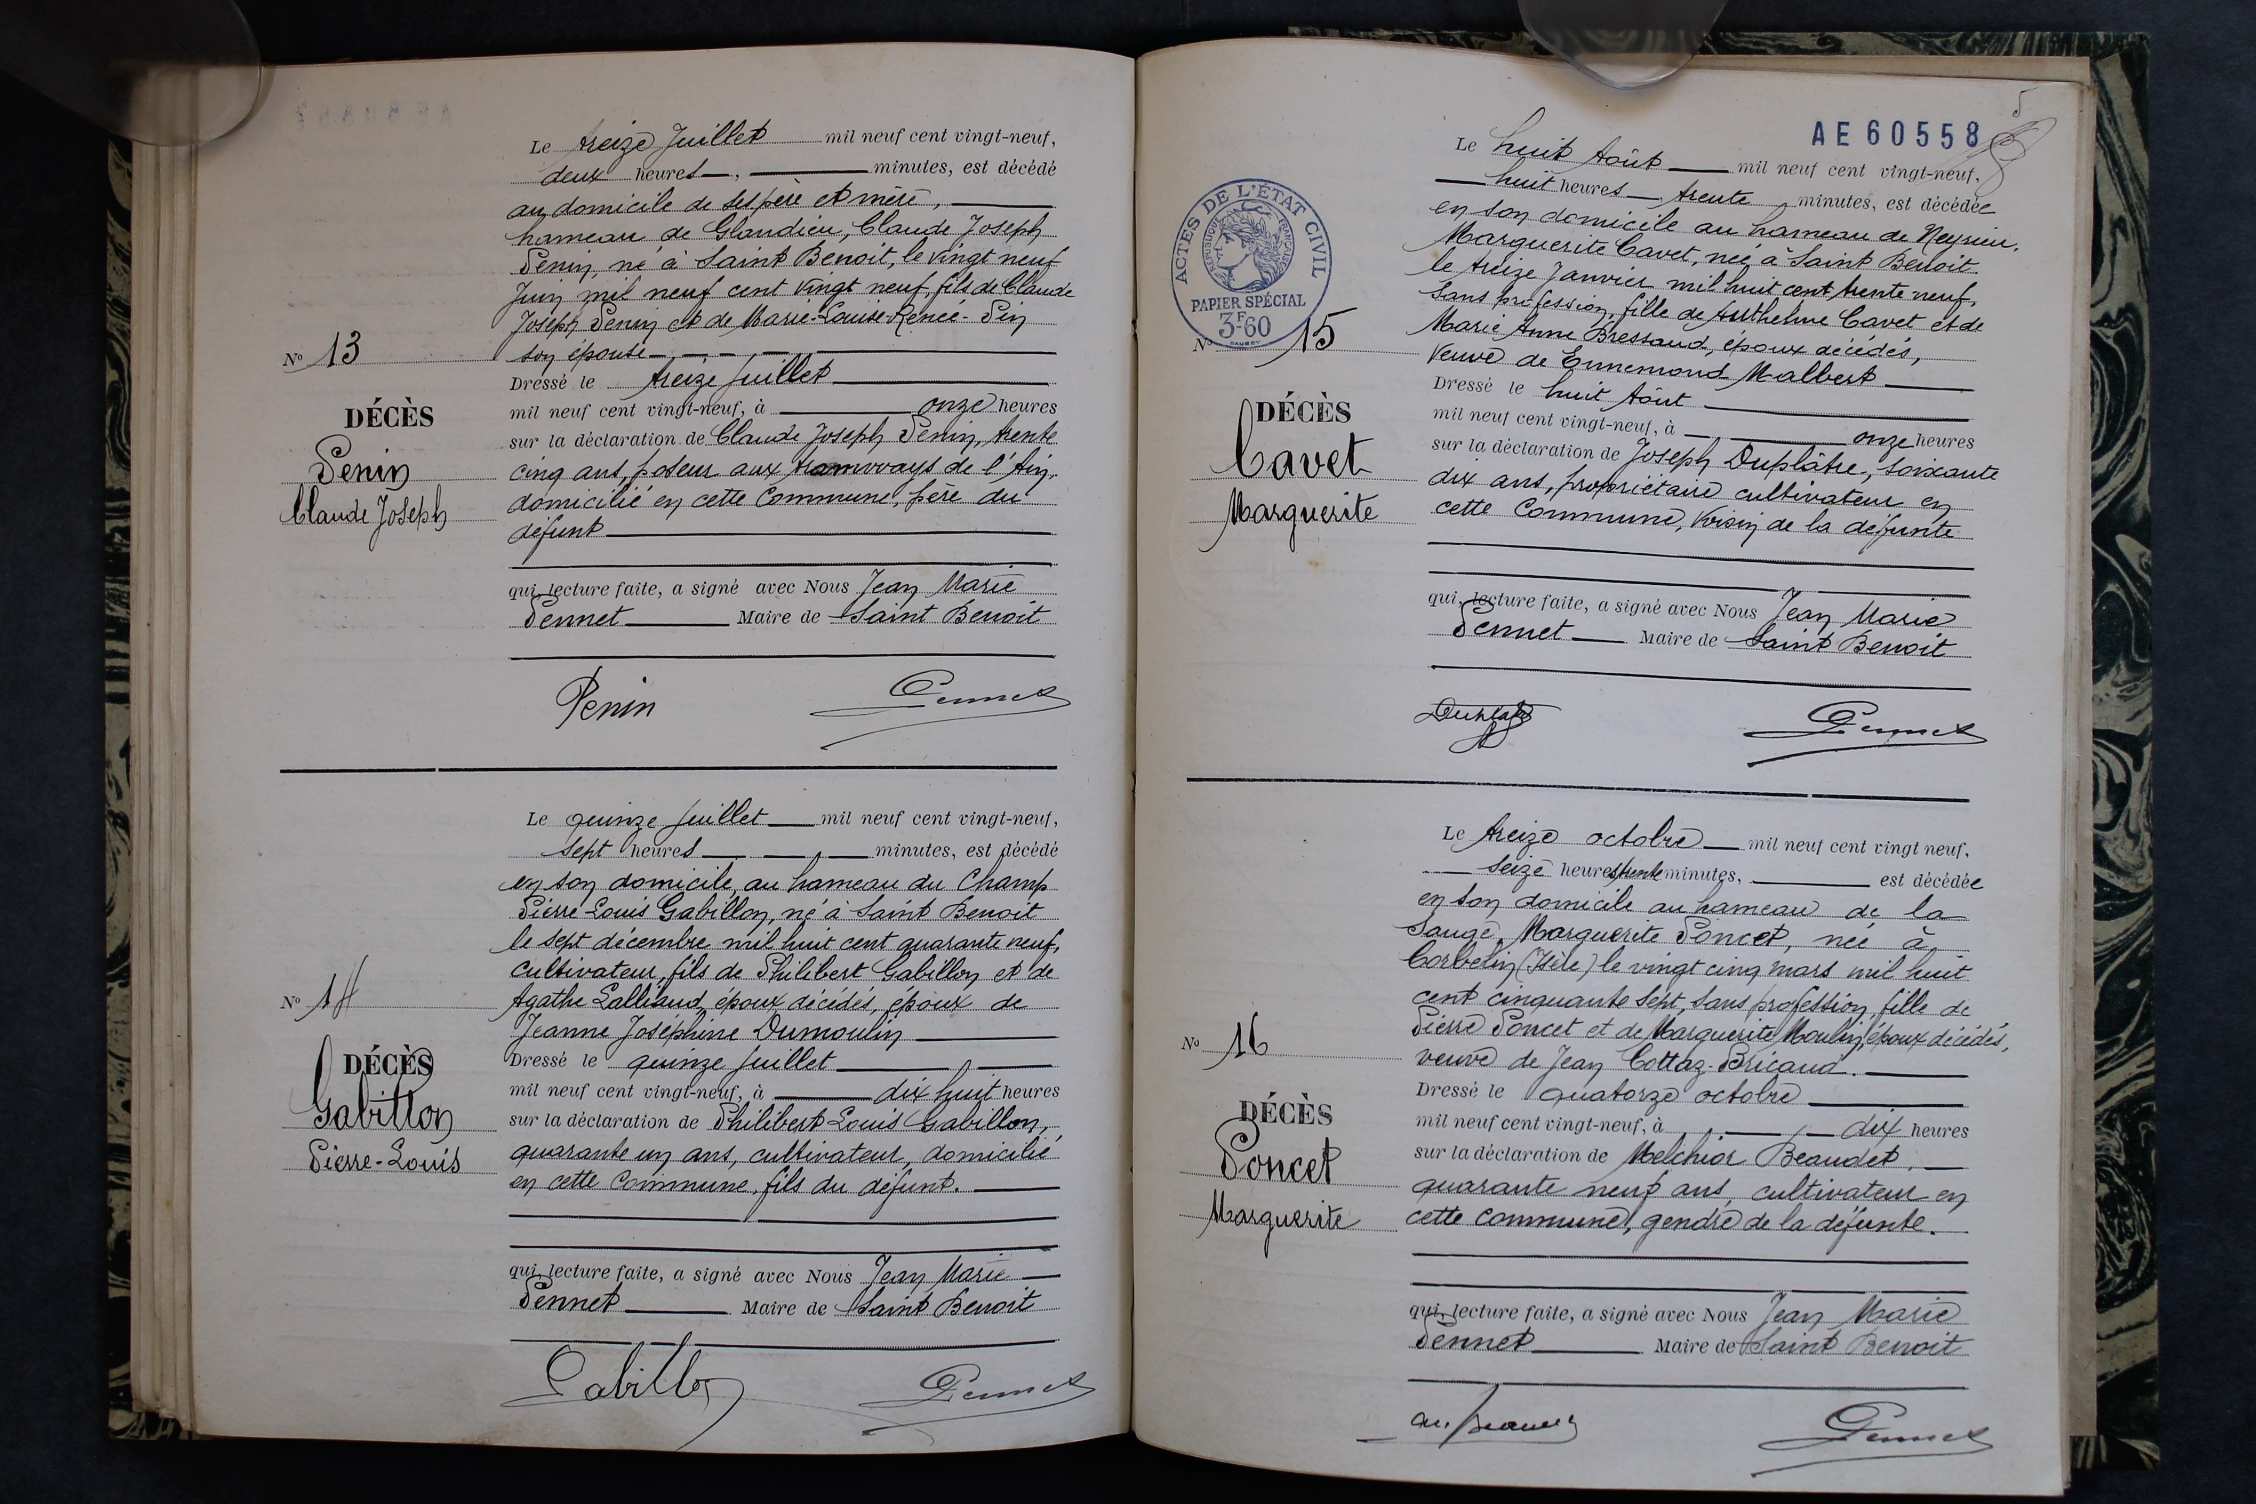 Le treize Juillet mil neuf cent vingt-neuf,
deux heures, minutes, est décédé
au domicile de ses père et mère,
hameau de Glandieu, Claude Joseph
Penin, né à Saint Benoit, le vingt neuf
Juin mil neuf cent vingt neuf, fils de Claude
Joseph Penin et de Marie-Louise-Renée- Pin
son épouse
Nº 13
Dressé le treize Juillet
mil neuf cent vingt-neuf, à onze heures
DÉCÈS
Penin
Claude Joseph
sur la déclaration de Claude Joseph Penin, trente
cinq ans, poseur aux tramways de l'Ain,
domicilié en cette Commune, père du
défunt
qui, lecture faite, a signé avec Nous Jean Marie
Pennet Maire de Saint Benoit
Penin Pennet
Le quinze Juillet mil neuf cent vingt-neuf,
sept heures minutes, est décédé
en son domicile, au hameau du Champ
Pierre Louis Gabillon, né à Saint Benoit
le sept décembre mil huit cent quarante neuf,
cultivateur, fils de Philibert Gabillon et de
Agathe Lalliaud, époux décédés, époux de
Jeanne Joséphine Dumoulin
Nº 14
DÉCÈS
Gabillon
Pierre-Louis
Dressé le quinze Juillet
mil neuf cent vingt-neuf, à dix huit heures
sur la déclaration de Philibert Louis Gabillon,
quarante un ans, cultivateur, domicilié
en cette Commune, fils du défunt.
qui, lecture faite, a signé avec Nous Jean Marie
Pennet Maire de Saint Benoit
Gabillon Pennet
5
AE 60558
ACTES DE L'ÉTAT CIVIL
RÉPUBLIQUE FRANÇAISE
PAPIER SPÉCIAL
3F-60
Le huit Août mil neuf cent vingt-neuf,
huit heures trente minutes, est décédée
en son domicile au hameau de Neyrieu,
Marguerite Cavet, née à Saint Benoit
le treize Janvier mil huit cent trente neuf,
sans profession, fille de Anthelme Cavet et de
Marie Anne Bressaud, époux décédés,
veuve de Ennemond Malbert
Nº 15
DÉCÈS
Cavet
Marguerite
Dressé le huit Août
mil neuf cent vingt-neuf, à onze heures
sur la déclaration de Joseph Duplâtre, soixante
dix ans, propriétaire cultivateur en
cette Commune, voisin de la défunte
qui, lecture faite, a signé avec Nous Jean Marie
Pennet Maire de Saint Benoit
Pennet
Le treize octobre mil neuf cent vingt neuf,
seize heures trente minutes, est décédée
en son domicile au hameau de la
Sauge, Marguerite Poncet, née à
Corbelin (Isère) le vingt cinq mars mil huit
cent cinquante sept, sans profession, fille de
Pierre Poncet et de Marguerite Moulin, époux décédés,
veuve de Jean Cottaz-Bricaud.
Nº 16
DÉCÈS
Poncet
Marguerite
Dressé le quatorze octobre
mil neuf cent vingt-neuf, à dix heures
sur la déclaration de Melchior Beaudet,
quarante neuf ans, cultivateur en
cette commune, gendre de la défunte.
qui, lecture faite, a signé avec Nous Jean Marie
Pennet Maire de Saint Benoit
Pennet